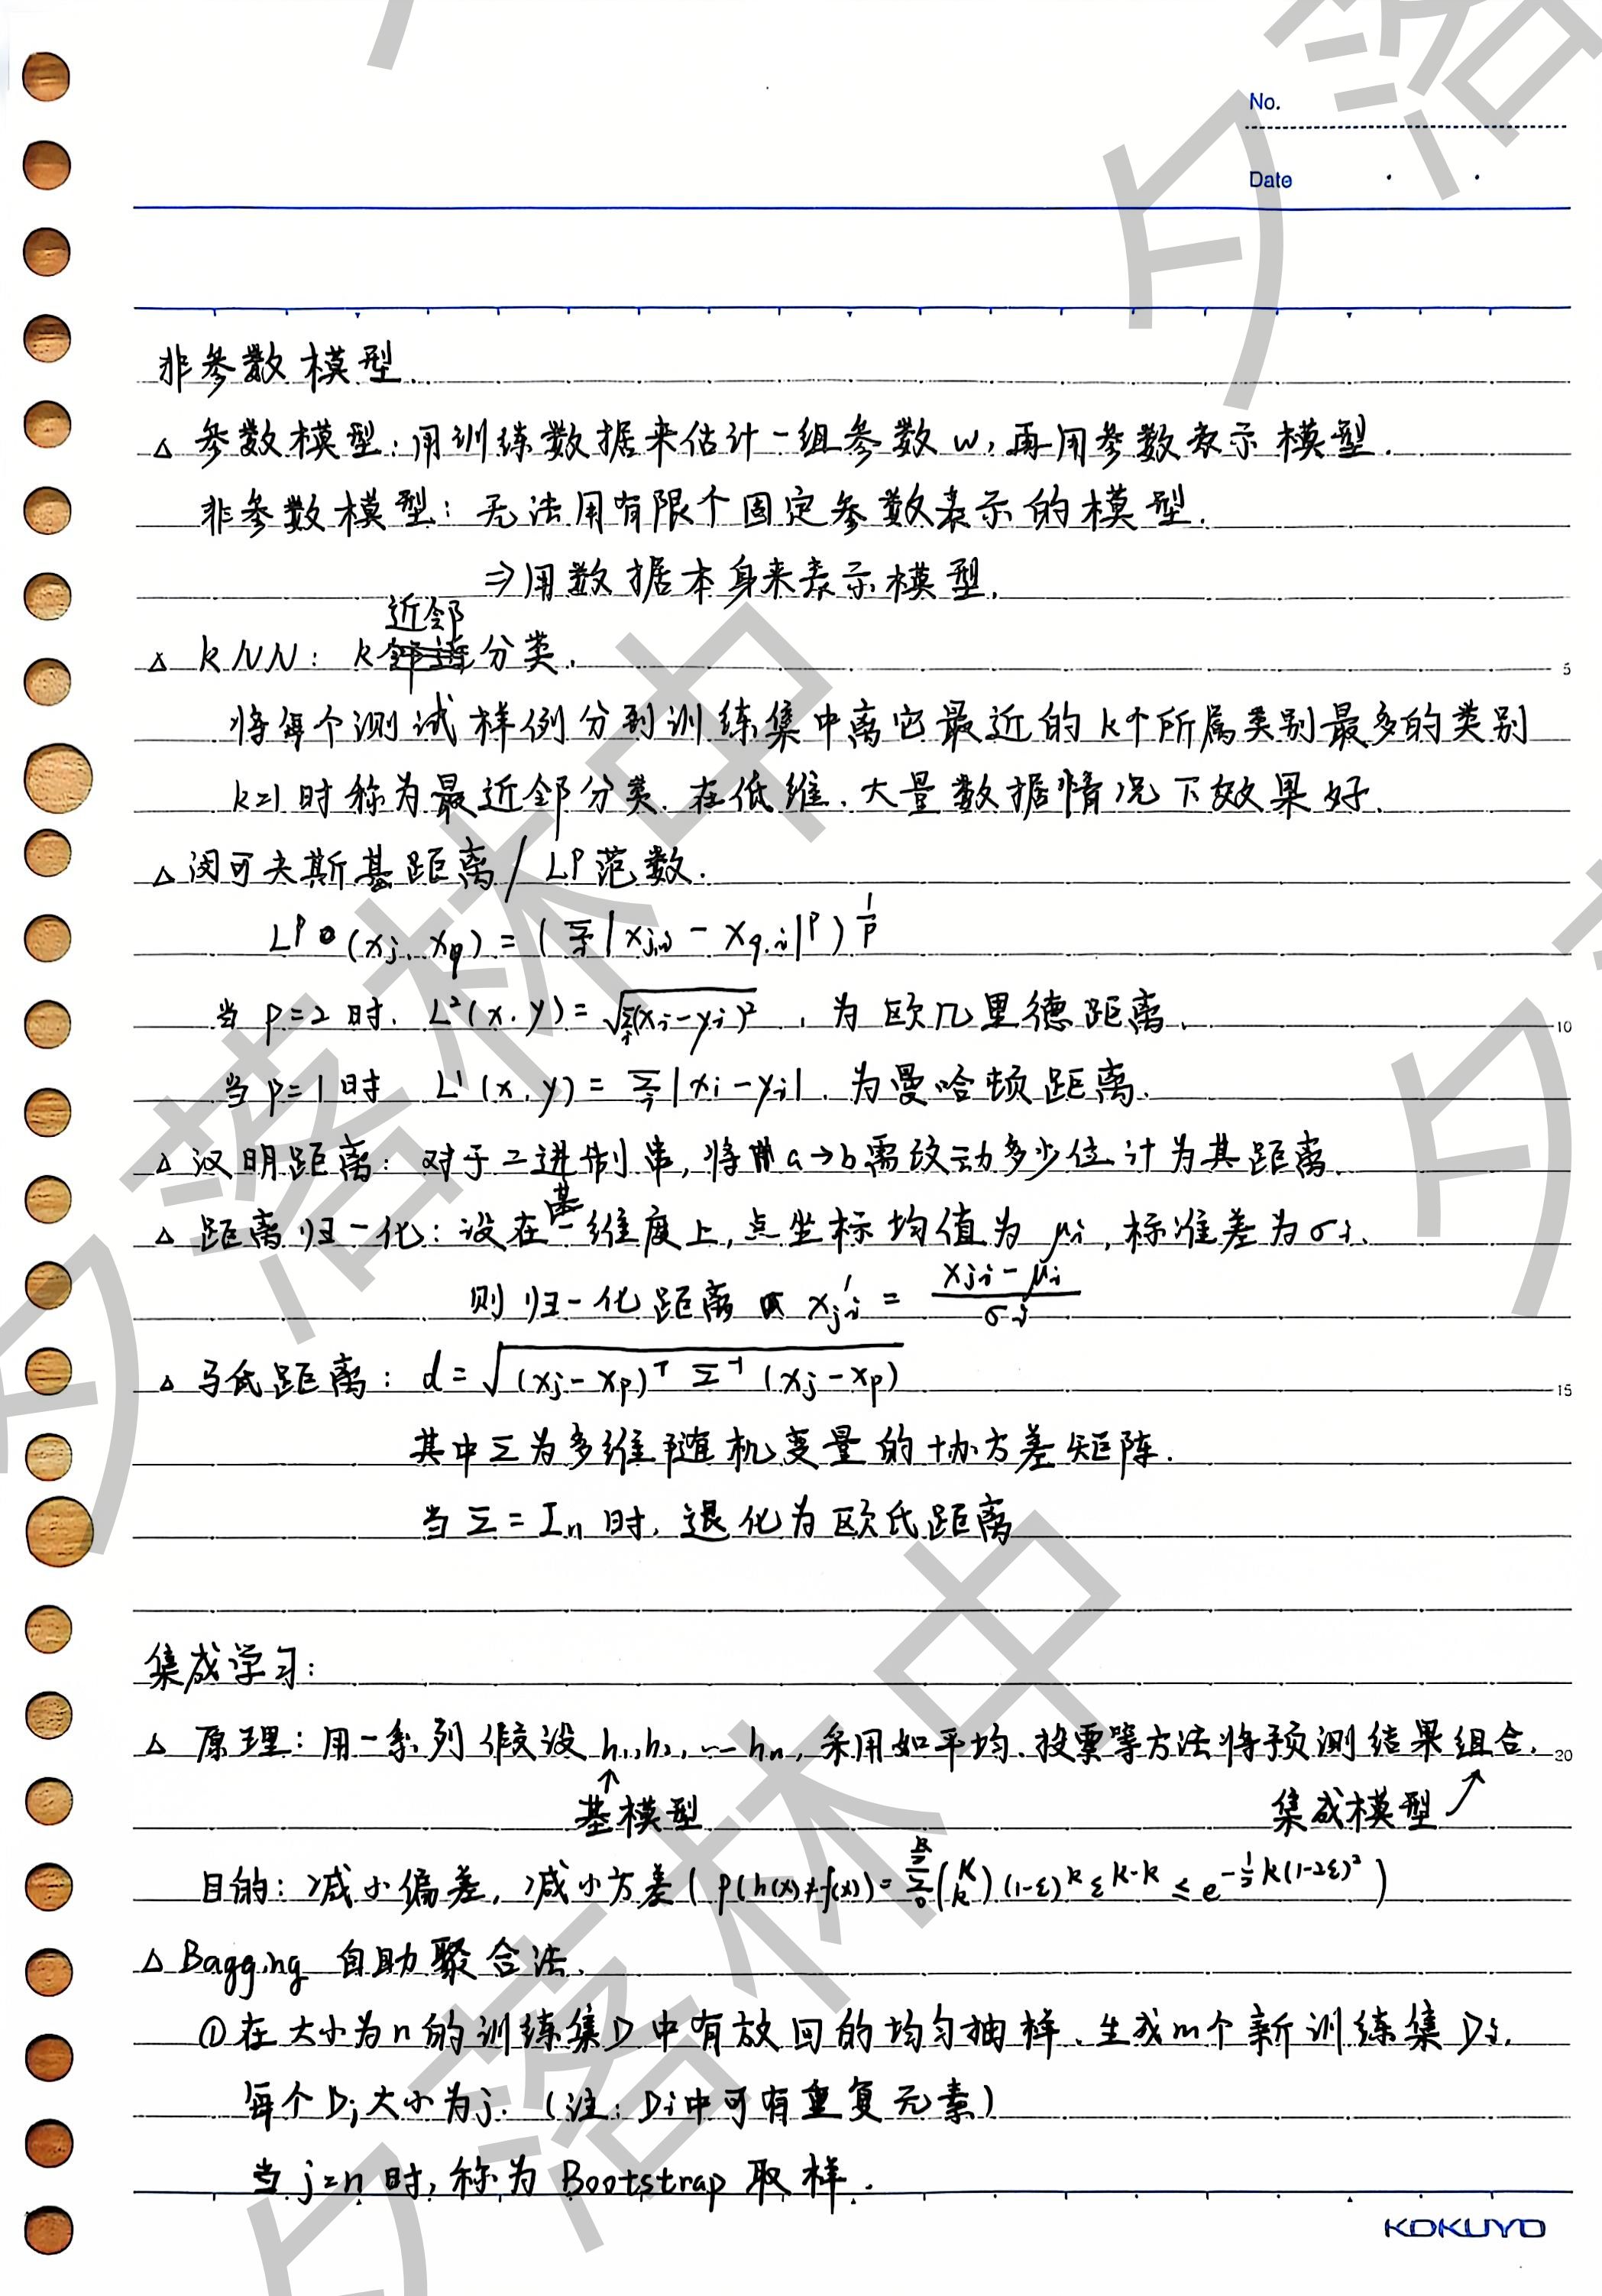 No.
Date
非参数模型.
△ 参数模型:用训练数据来估计一组参数 w,再用参数表示模型.
非参数模型:无法用有限个固定参数表示的模型.
⇒用数据本身来表示模型.
近邻
△ kNN: k 分类.
将每个测试样例分到训练集中离它最近的k个所属类别最多的类别
k=1时称为最近邻分类.在低维、大量数据情况下效果好.
△ 闵可夫斯基距离/LP范数.
Lᵖ(xj, xq) = (Σᵢ|xj,i - xq,i|ᵖ)^(1/p)
当 p=2 时. L²(x,y) = √(Σᵢ(xi-yi)²) ,为欧几里德距离.
当 p=1 时 L¹(x,y) = Σᵢ|xi-yi|.为曼哈顿距离.
△ 汉明距离:对于二进制串,将 a→b需改动多少位计为其距离.
△ 距离归一化:设在某一维度上,点坐标均值为 μi,标准差为σi.
则归一化距离 xj'i = (xji-μi)/σi
△ 马氏距离: d = √((xj-xp)ᵀ Σ⁻¹ (xj-xp))
其中Σ为多维随机变量的协方差矩阵.
当Σ=In时,退化为欧氏距离
集成学习:
△ 原理:用一系列假设 h1,h2,…hn,采用如平均、投票等方法将预测结果组合.
↑
基模型 集成模型↗
目的:减小偏差,减小方差( p(h(x)≠f(x)) = Σ₀^(K/2) (K k) (1-ε)^k ε^(K-k) ≤ e^(-½K(1-2ε)²) )
△ Bagging 自助聚合法.
①在大小为n的训练集D中有放回的均匀抽样、生成m个新训练集Di.
每个Di大小为j.(注:Di中可有重复元素)
当j=n时,称为Bootstrap取样.
KOKUYO
夕落林中
夕落林中